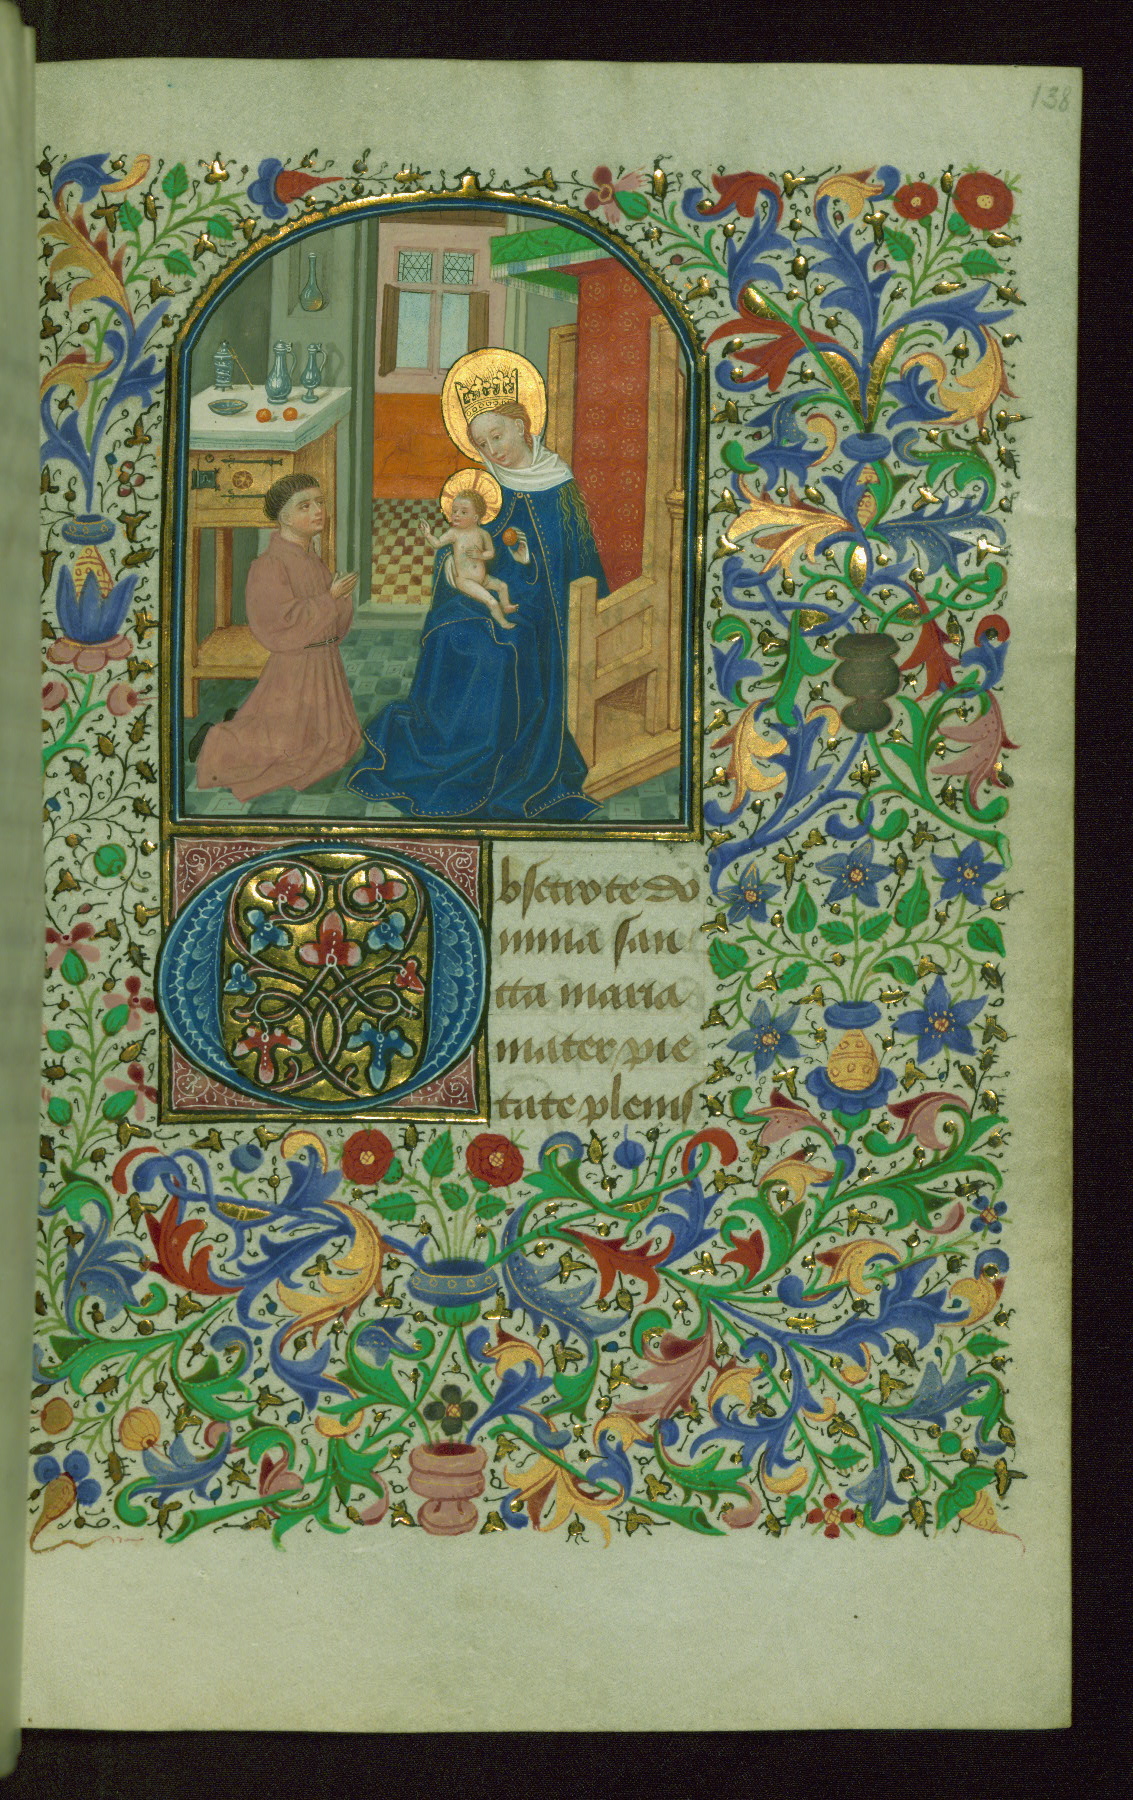 138
Obsecro te do
mina san
cta maria
mater pie
tate plenis